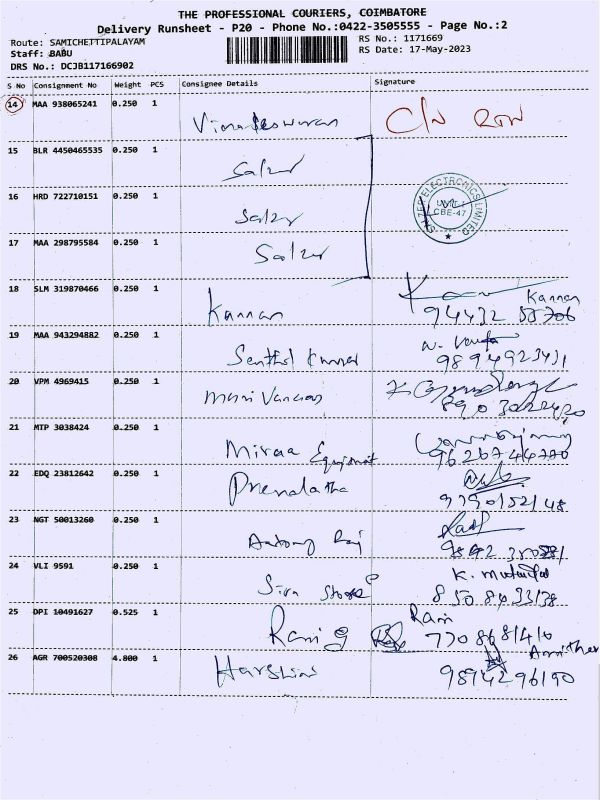 THE PROFESSIONAL COURIERS, COIMBATORE
Delivery Runsheet - P20 - Phone No.:0422-3505555 - Page No.:2
Route: SAMICHETTIPALAYAM
Staff: BABU
DRS No.: DCJB117166902
RS No.: 1171669
RS Date: 17-May-2023
S No Consignment No Weight PCS Consignee Details Signature
14 MAA 938065241 0.250 1
15 BLR 4450465535 0.250 1 Salzer
16 HRD 722710151 0.250 1 Salzer
SALZER ELECTRONICS LIMITED
CBE-47
17 MAA 298795584 0.250 1 Salzer
18 SLM 319870466 0.250 1 Kannan Kannan
94432
19 MAA 943294882 0.250 1 Senthil Kumar
9894923431
20 VPM 4969415 0.250 1 Manivannan
21 MTP 3038424 0.250 1 Miraa Equipment
9626744770
22 EDQ 23812642 0.250 1 Premalatha
9790152148
23 NGT 50013260 0.250 1 Antony Raj
24 VLI 9591 0.250 1 Siva Stores
25 DPI 10491627 0.525 1 Rani g Rani
26 AGR 700520308 4.800 1 Harshini
9894296190